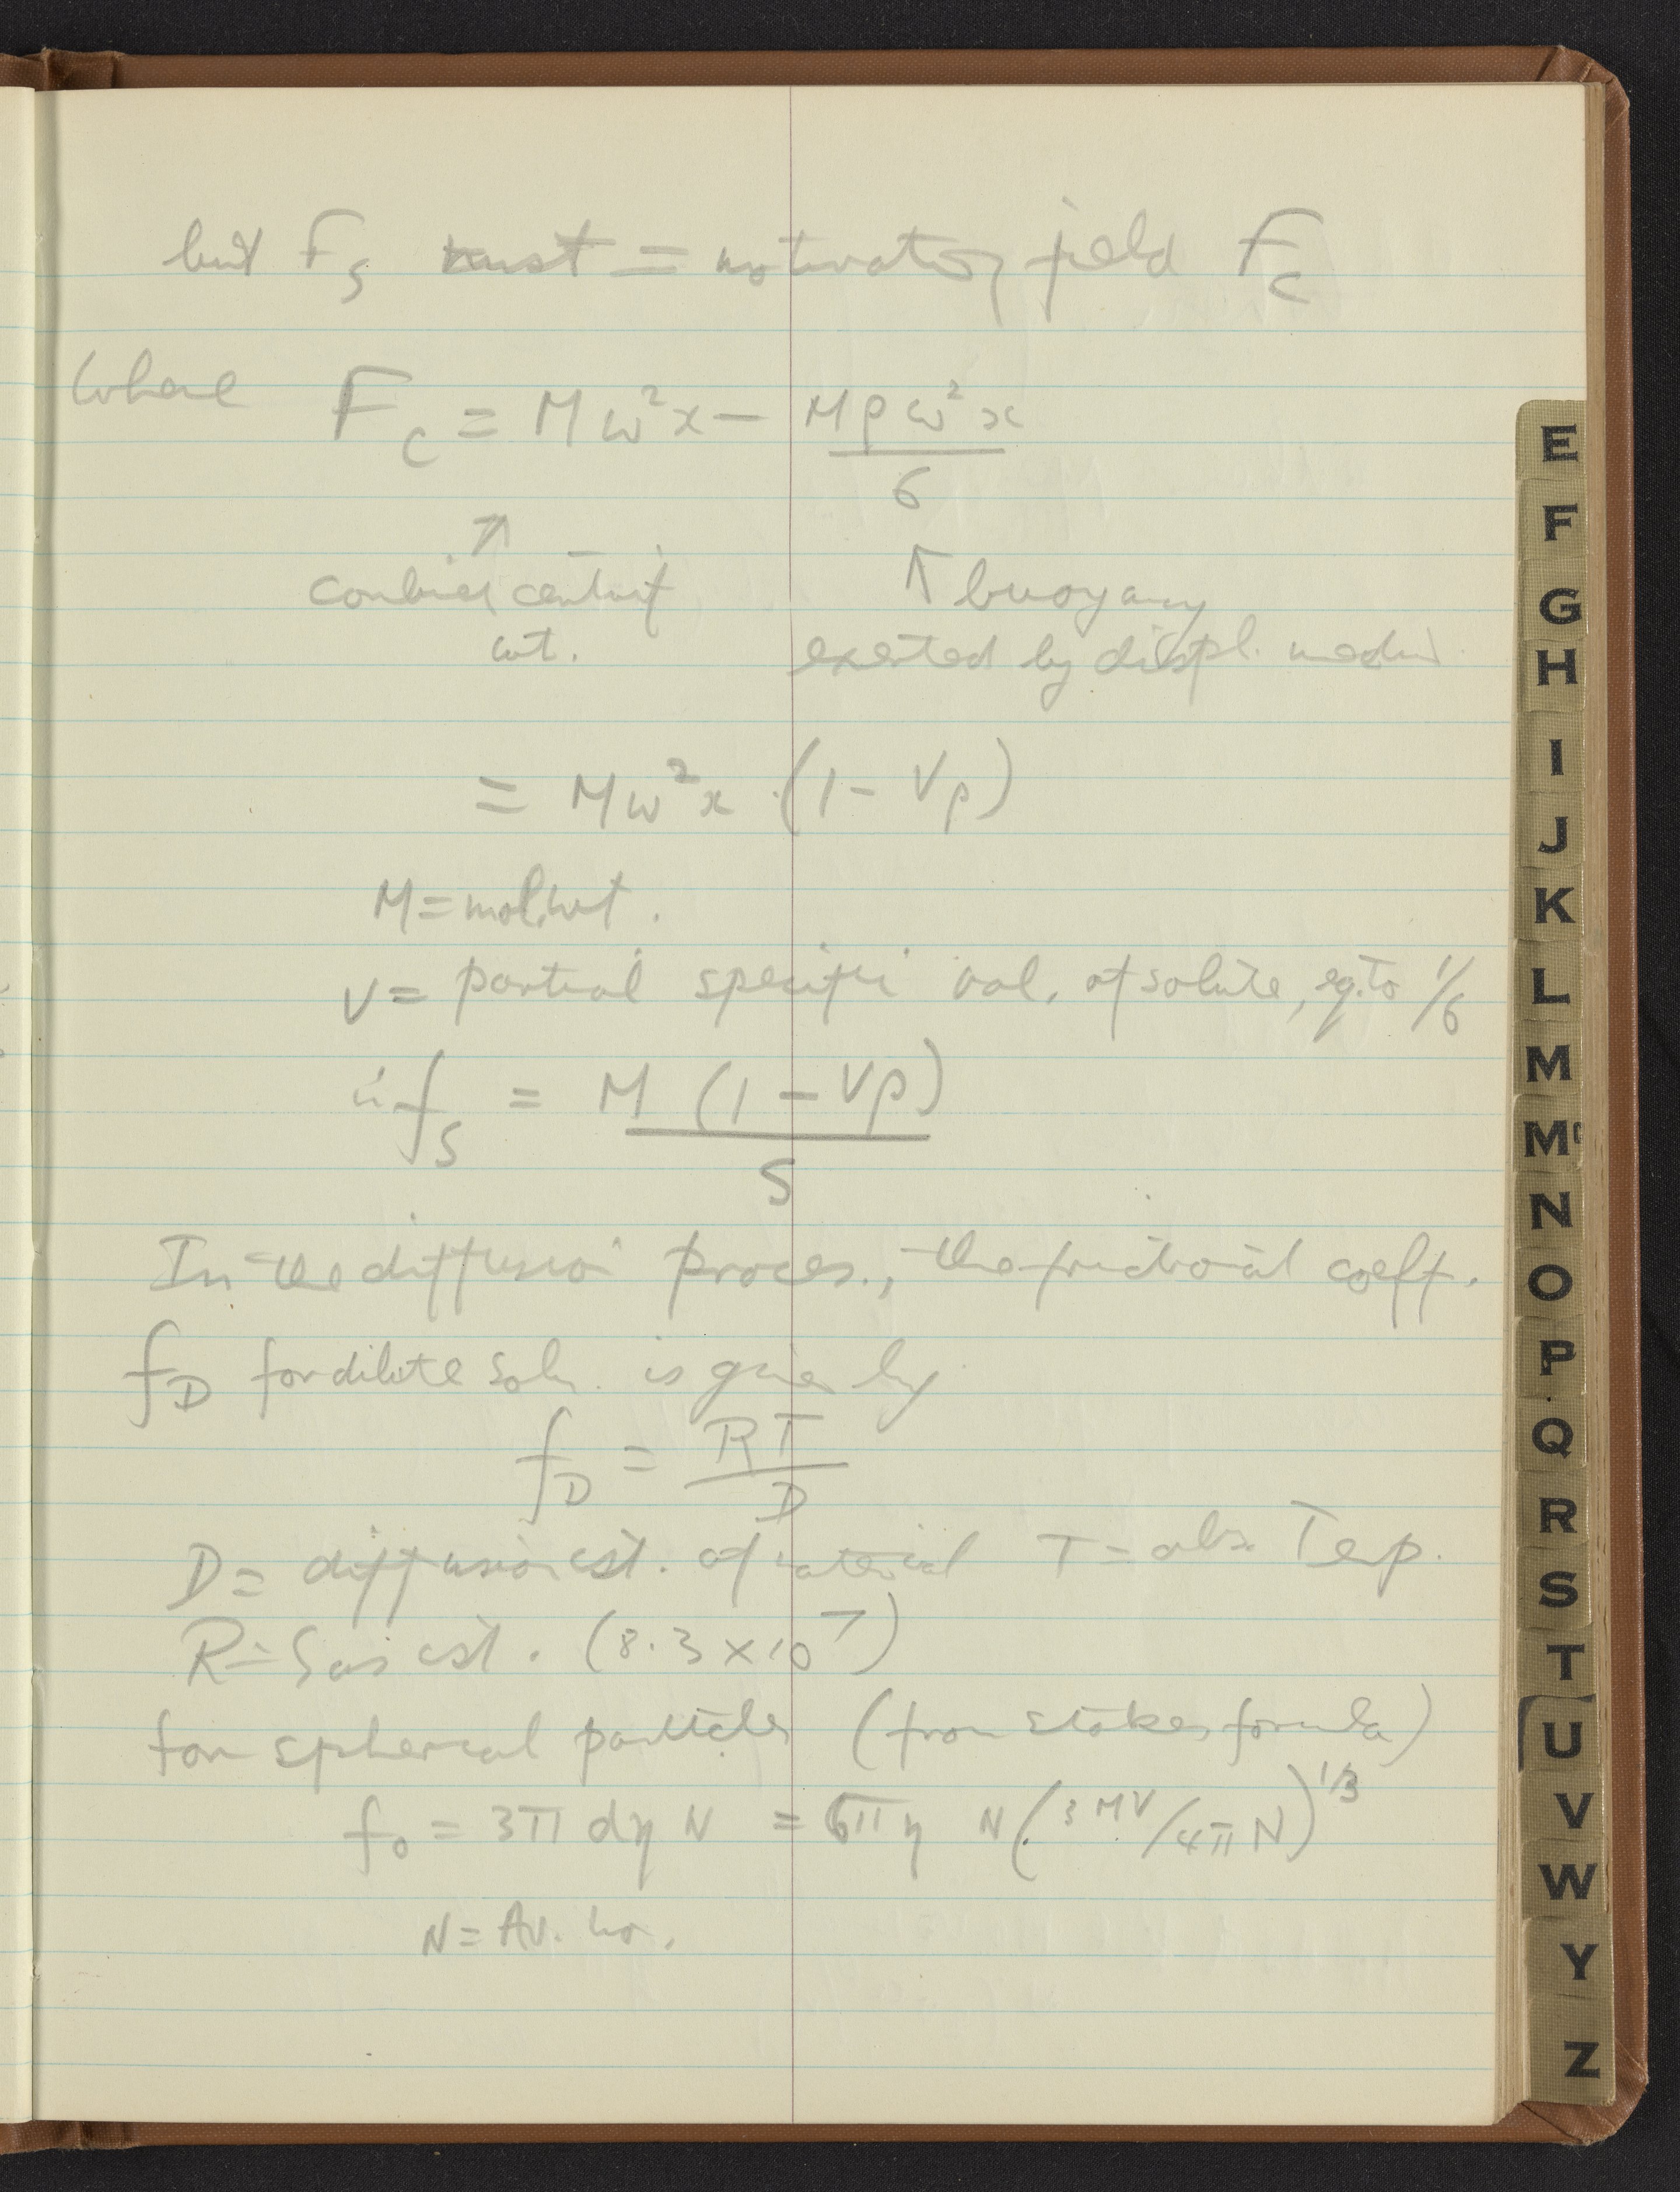 but F_S must = motivating field F_C
where F_C = Mω²x − Mρω²x / 6
↑ ↑ buoyancy
combined centrif
wt. exerted by displ. medium
= Mω²x (1 − Vρ)
M = mol. wt.
V = partial specific vol. of solute, eq. to 1/6
∴ f_S = M (1 − Vρ) / S
In the diffusion process, the frictional coeff.
f_D for dilute soln. is given by
f_D = RT / D
D = diffusion cst. of material T = abs. Temp.
R = Gas cst. (8.3 × 10⁷)
for spherical particles (from Stokes formula)
f₀ = 3π dη N = 6π η N (3 MV/4π N)^1/3
N = Av. no.
E
F
G
H
I
J
K
L
M
Mc
N
O
P
Q
R
S
T
U
V
W
Y
Z